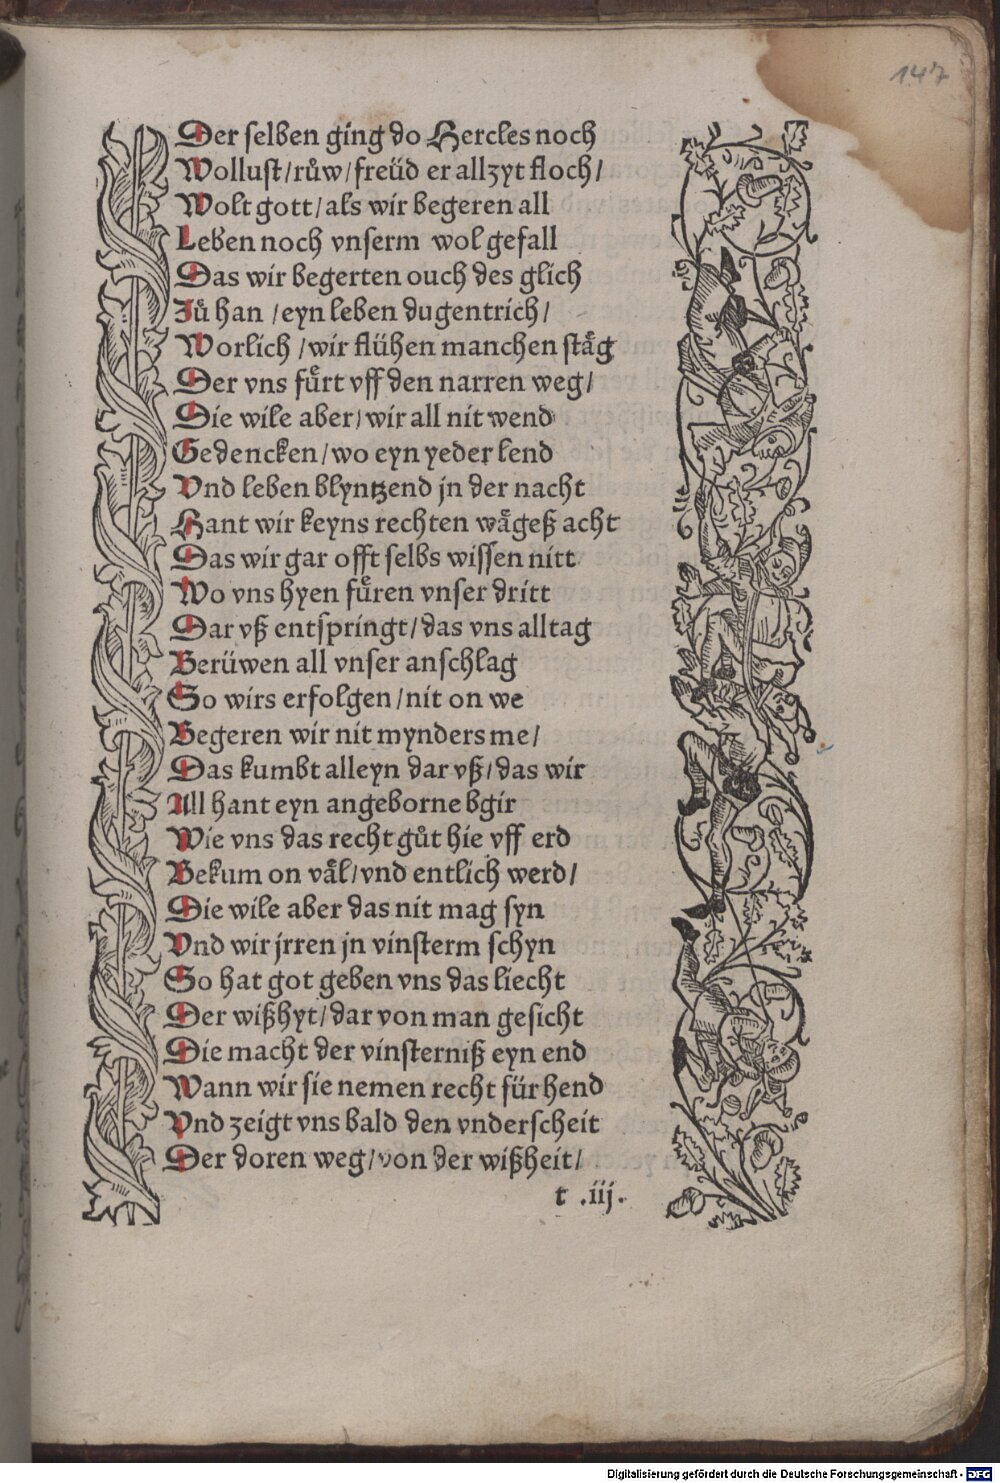 147
Der selben ging do Hercles noch
Wollust/růw/freüd er allzyt floch/
Wolt gott/als wir begeren all
Leben noch vnserm wolgefall
Das wir begerten ouch des glich
Zů han /eyn leben dugentrich/
Worlich /wir flühen manchen stäg
Der vns fuͤrt vff den narren weg/
Die wile aber/wir all nit wend
Gedencken/wo eyn yeder lend
Vnd leben blyntzend jn der nacht
Hant wir keyns rechten wägeß acht
Das wir gar offt selbs wissen nitt
Wo vns hyen fuͤren vnser dritt
Dar vß entspringt/das vns alltag
Berüwen all vnser anschlag
So wirs erfolgen/nit on we
Begeren wir nit mynders me/
Das kumbt alleyn dar vß/das wir
All hant eyn angeborne bgir
Wie vns das recht gůt hie vff erd
Bekum on väl/vnd entlich werd/
Die wile aber das nit mag syn
Vnd wir jrren jn vinsterm schyn
So hat got geben vns das liecht
Der wißhyt/dar von man gesicht
Die macht der vinsterniß eyn end
Wann wir sie nemen recht für hend
Vnd zeigt vns bald den vnderscheit
Der doren weg/von der wißheit/
t .iij.
Digitalisierung gefördert durch die Deutsche Forschungsgemeinschaft - DFG